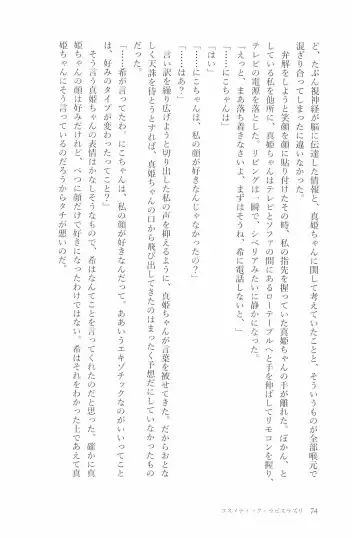 ど、たぶん視神経が脳に伝達した情報と、真姫ちゃんに関して考えていたことと、そういうものが全部喉元で
混ざり合ってしまったに違いなかった。
弁解をしようと笑顔を顔に貼り付けたその時、私の指先を握っていた真姫ちゃんの手が離れた。ぽかん、と
している私を他所に、真姫ちゃんはテレビとソファの間にあるローテーブルへと手を伸ばしてリモコンを握り、
テレビの電源を落とした。リビングは一瞬で、シベリアみたいに静かになった。
「えっと、まあ落ち着きなさいよ、まずはそうね、希に電話しないと、」
「……にこちゃんは」
「はい」
「……にこちゃんは、私の顔が好きなんじゃなかったの?」
「……はあ?」
言い訳を繰り広げようと切り出した私の声を抑えるように、真姫ちゃんが言葉を被せてきた。だからおとな
しく天誅を待とうとすれば、真姫ちゃんの口から飛び出してきたのはまったく予想だにしていなかったもの
「……希が言ってたわ、にこちゃんは、私の顔が好きなんだって。ああいうエキゾチックなのがいいってこと
は、好みのタイプが変わったってこと?」
そう言う真姫ちゃんの表情はかなしそうなもので、希はなんてことを言ってくれたのだと思った。確かに真
姫ちゃんの顔は好みだけれど、べつに顔だけで好きになったわけではない。希はそれをわかった上であえて真
姫ちゃんにそう言っているのだろうからタチが悪いのだ。
コスメティック・ラピスラズリ
74